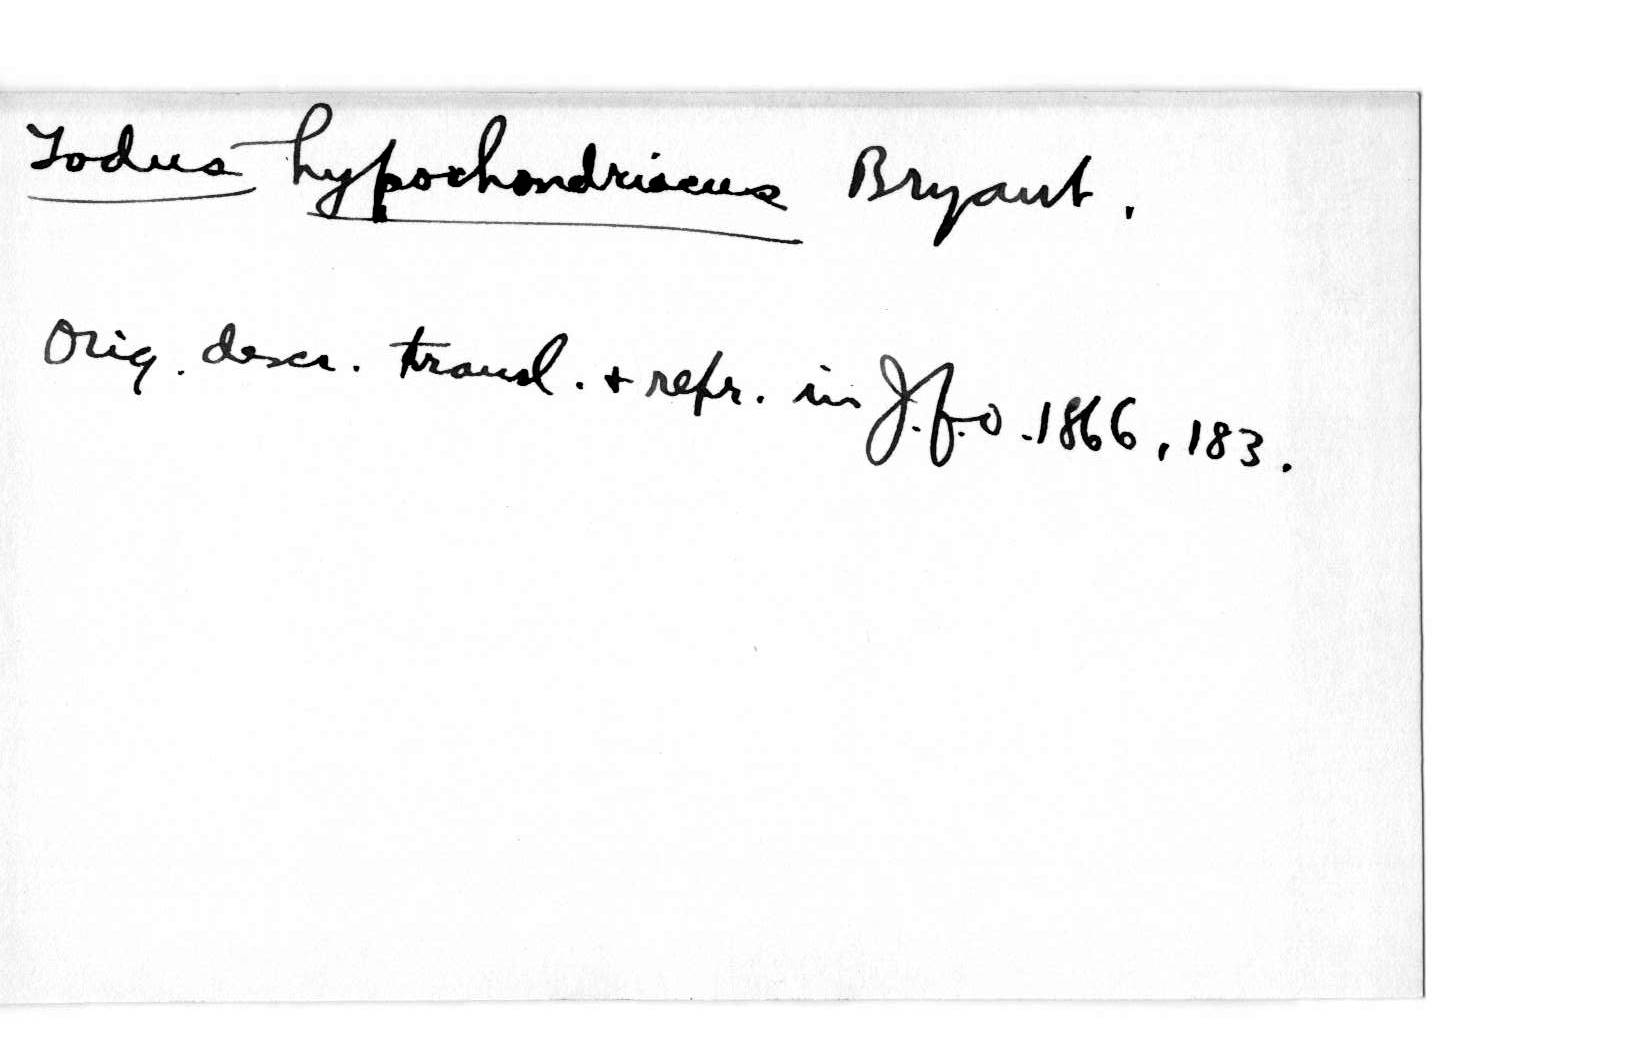 Todus hypochondriacus Bryant.
Orig. descr. transl. + repr. in J.f.O. 1866, 183.